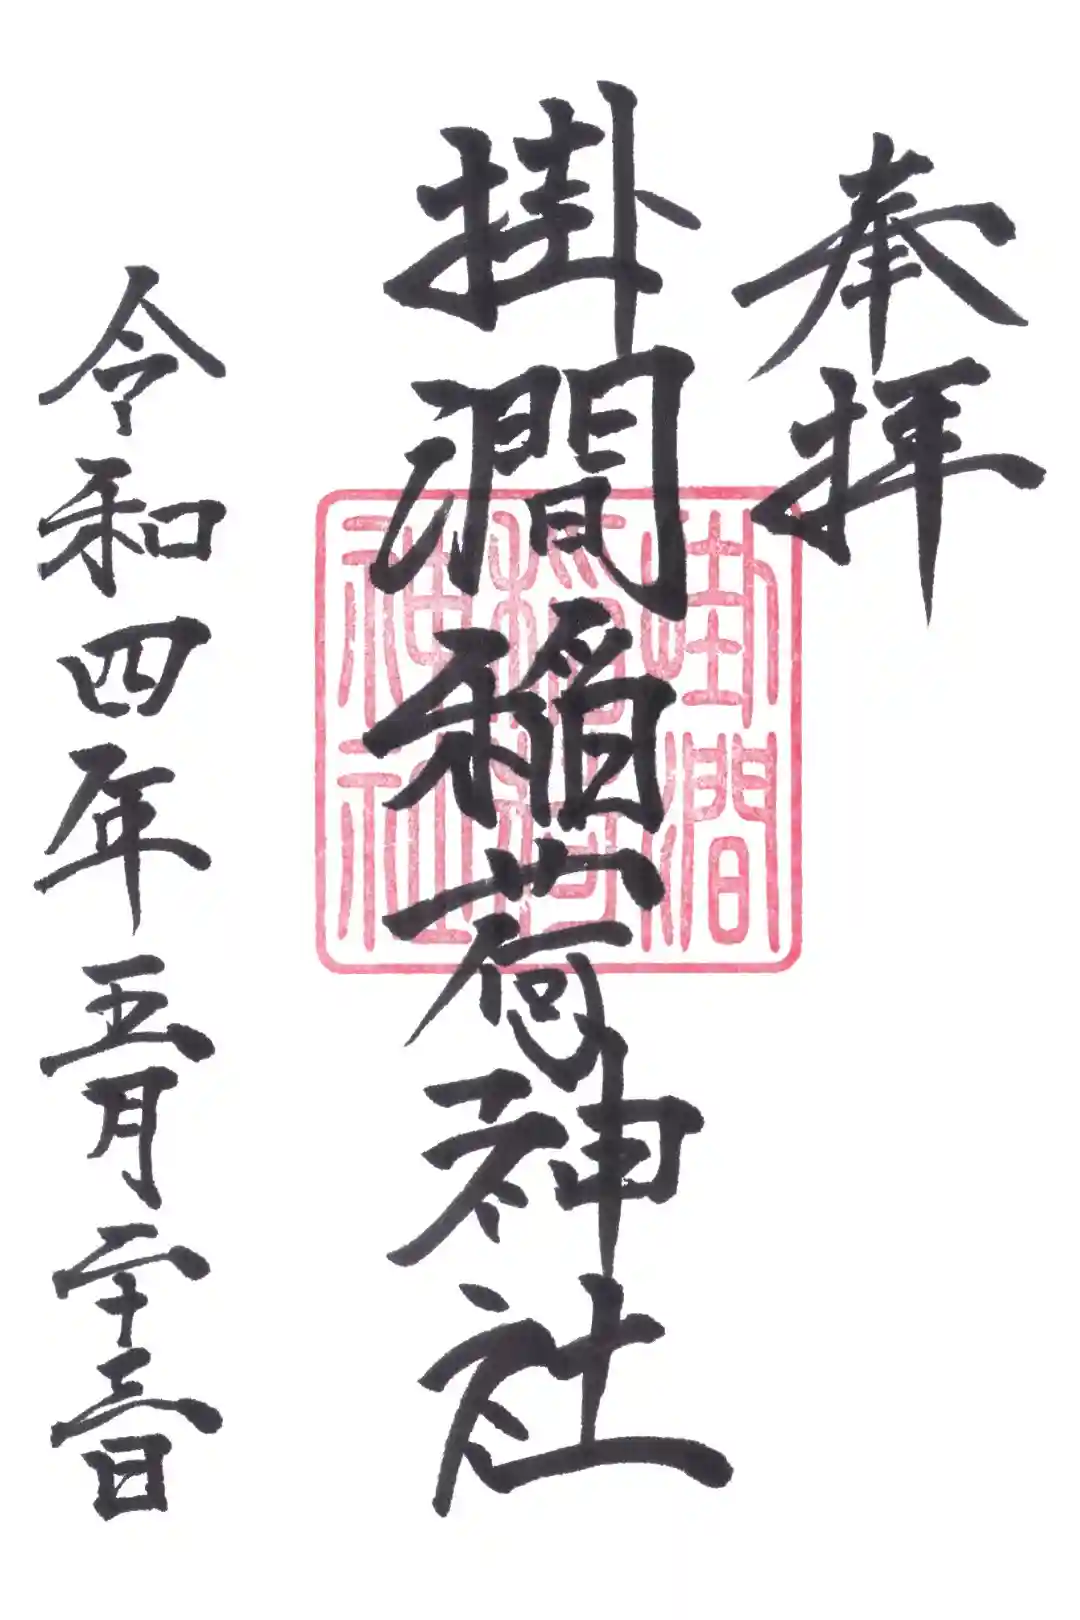 奉拝
掛澗稲荷神社
掛澗稲荷神社
令和四年五月二十三日